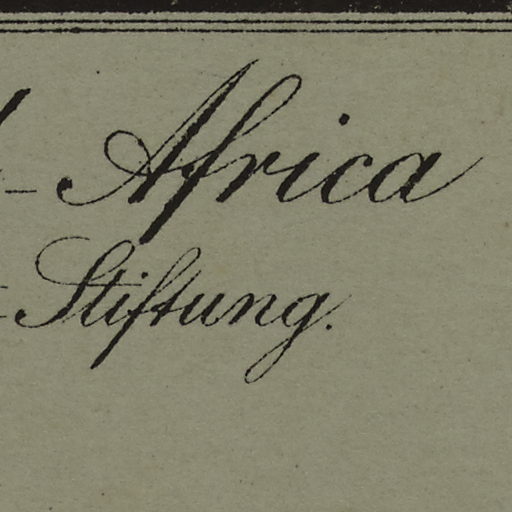 - Africa
- Stiftung.